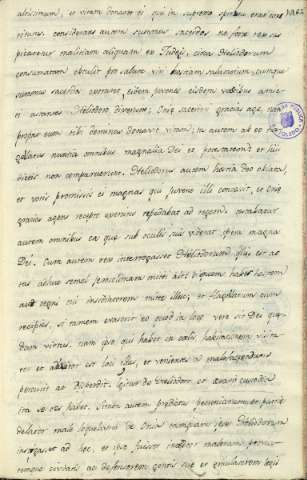 altissimum, et vitam donaret ei qui in supremo spiritu erat cons
titutus considerans autem summus sacerdos ne forte rex sus
picaretur malitiam aliquam ex Judeis, circa Heliodorum
consumatam obtulit pro salute viri hostiam salutarem, cumque
summus sacerdos exoraret, eidem juvenes eisdem vestibus amic
ti astantes Heliodoro dixerunt; Oniæ sacerdoti gratias age, nam
propter eum tibi dominus donavit vitam; tu autem ab eo fla
gellatus nuncia omnibus magnalia Dei et potestatem et his
dictis non comparuerunt. Heliodorus autem hostia Deo oblata,
et votis promissis ei magnis qui vivere illi concessit, et Oniæ
gratias agens recepto exercitu repedabat ad regem. testabatur
autem omnibus ea que sub oculis suis viderat opera magna
Dei. Cum autem rex interrogasset Heliodorum quis esset ap
tus adhuc semel Jerosolimam mitti ait: si quem habes hostem
aut regni tui insidiatorem mitte illuc, et flagellatum eum
recipies, si tamen evaserit eo quod in loco vere sit Dei quæ
dam virtus. nam ipse qui habet in celis habitationem visita
tor et adjutor est loci illius, et venientes ad malefaciendum
percutit ac disperdit. igitur de Heliodoro, et ærarii custodia
ita se res habet. Simon autem predictus pecuniarum et patrie
delator male loquebatur de Onia tamquam ipse Heliodorum
instigasset ad hec, et ipse fuisset incentor malorum, proviso
remque civitatis ac defensorem gentis sue et emulatorem legis